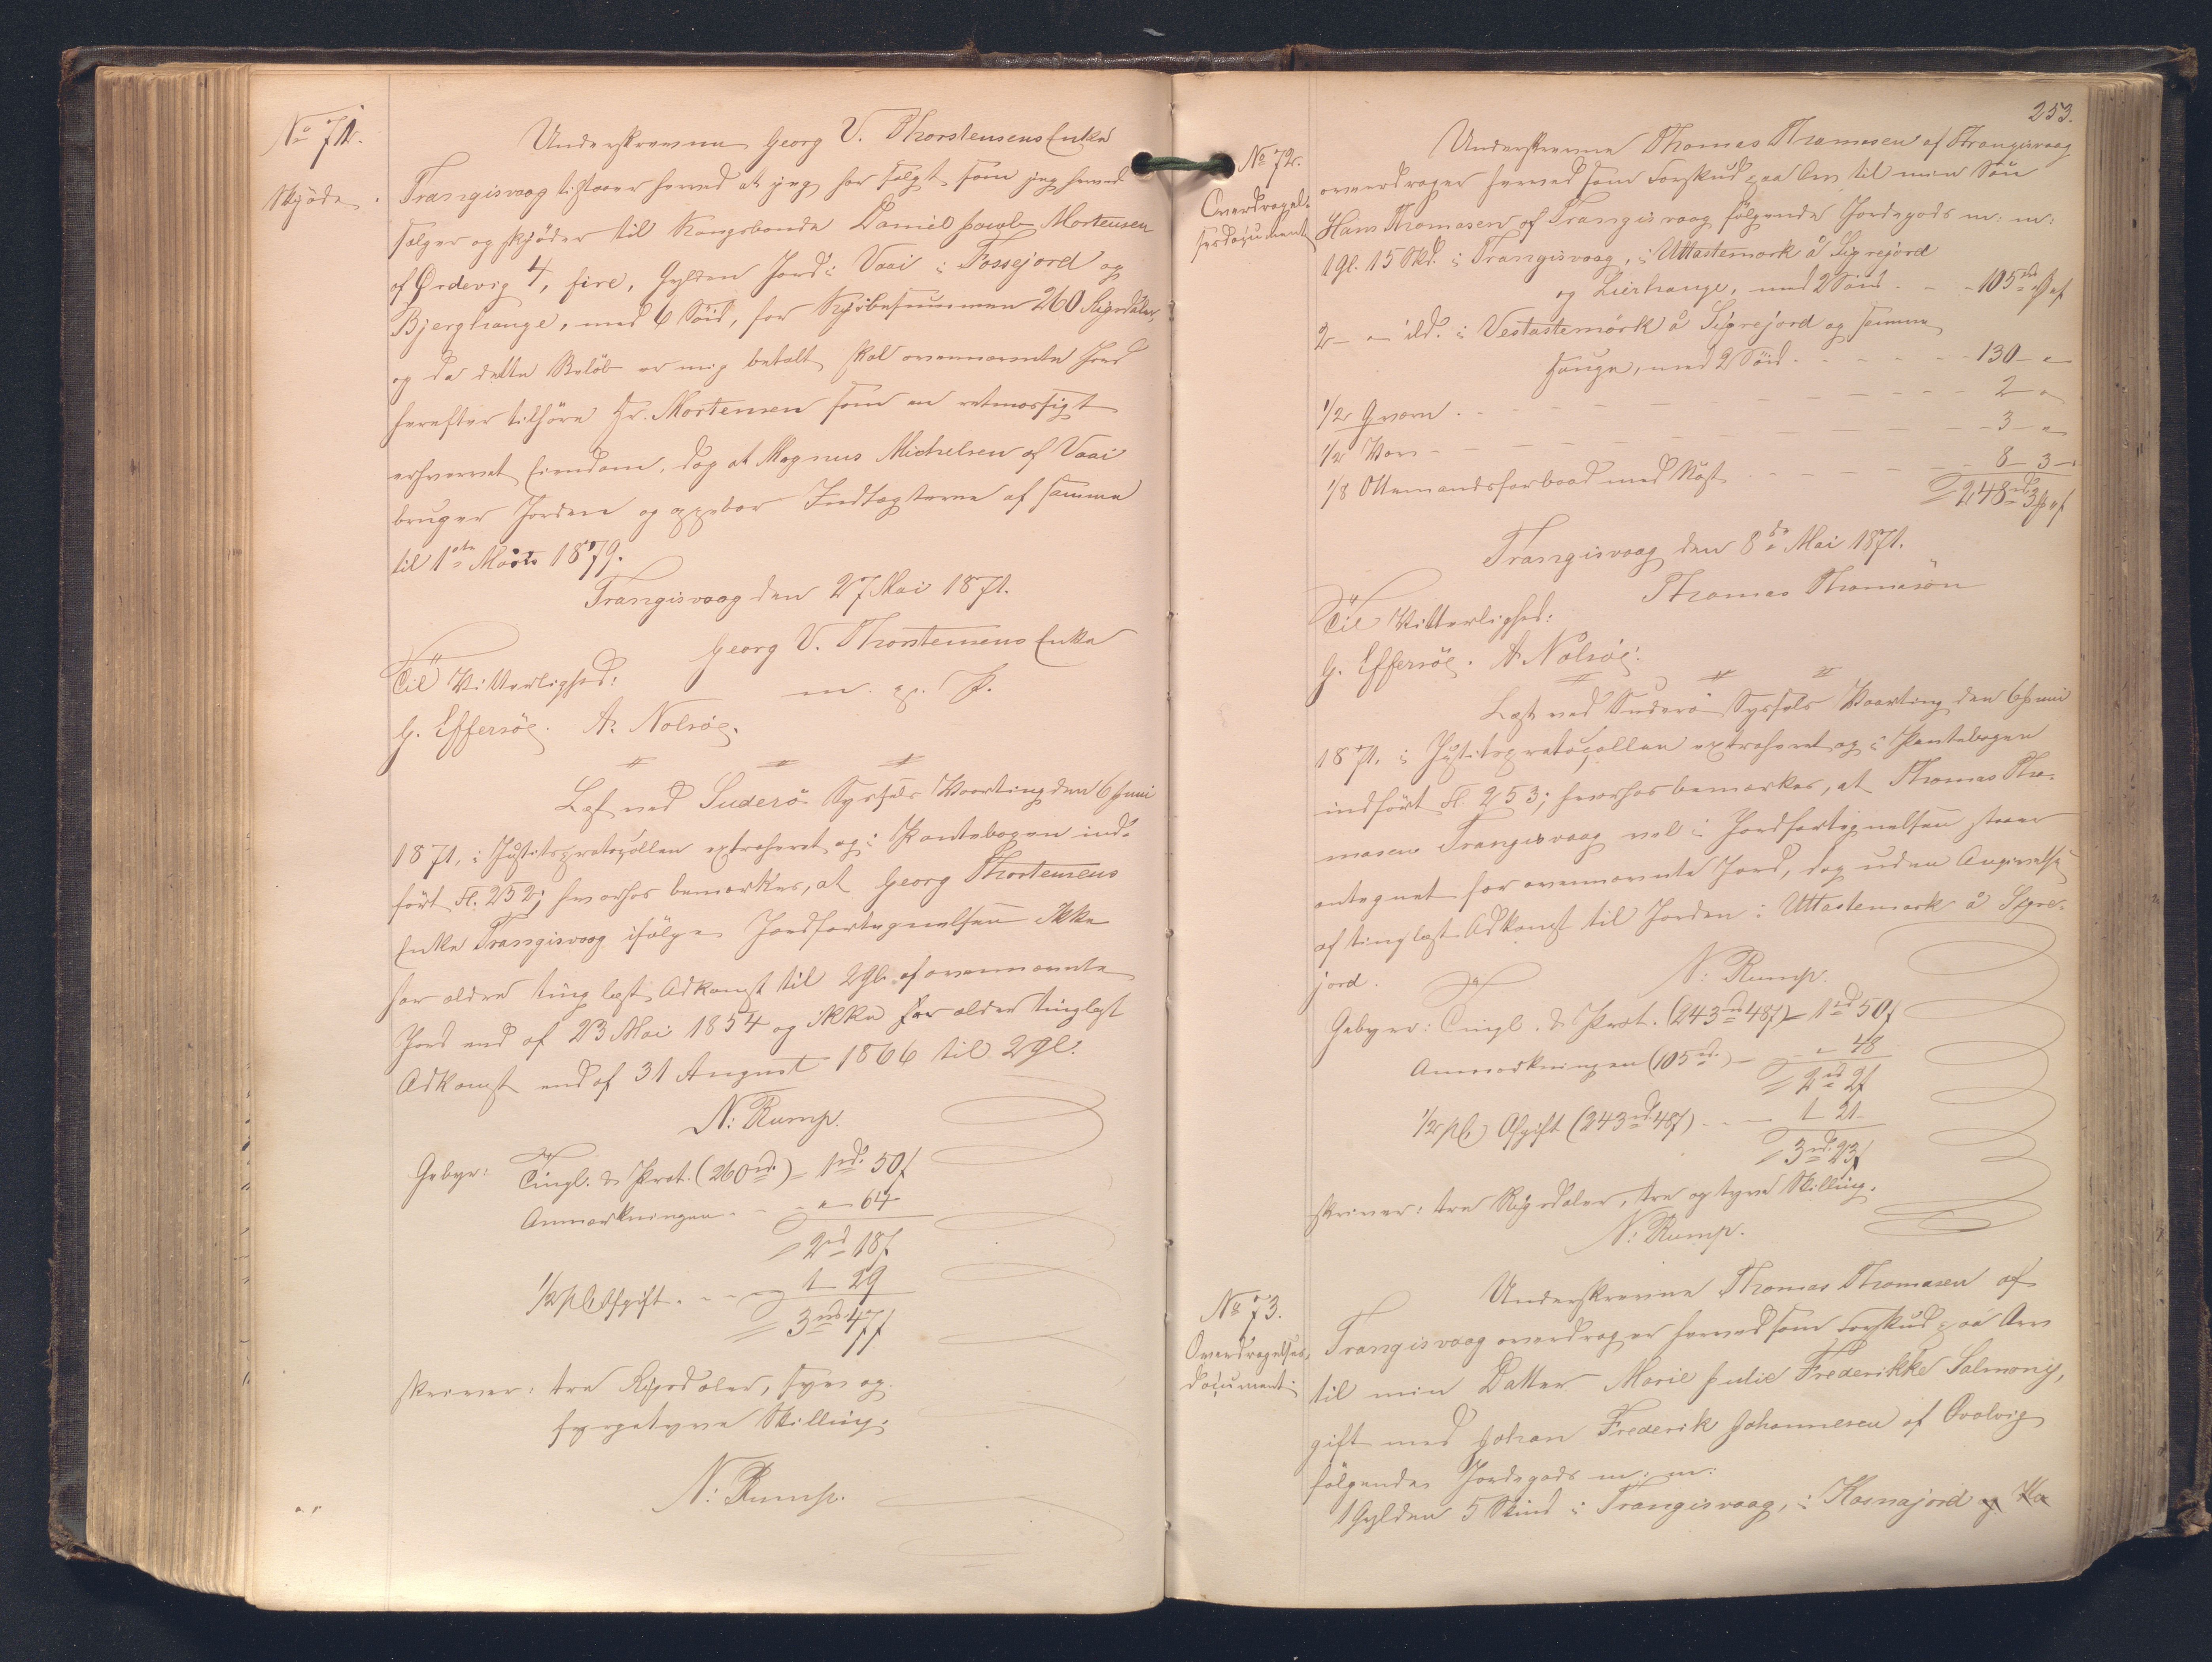 No 71.
Skjøde.
Underskrevne Georg V. Thorstensens Enke
Trangisvaag tilstaaer herved at jeg har solgt som jeg herved
sælger og skjøder til Kongsbonde Daniel Jacob Mortensen
af Ørdevig 4, fire, Gylden Jord i Vaai i Fossejord og
Bjerghauge, med 6 Söid, for Kjøbesummen 260 Rigsdaler,
og da dette Beløb er mig betalt skal ovennævnte Jord
herefter tilhøre Hr. Mortensen som en retmæssigt
erhvervet Eiendom, dog at Magnus Michelsen af Vaai
bruger Jorden og oppebær Indtægterne af samme
til 1ste Marts 1879.
Trangisvaag den 27 Mai 1871.
Georg V. Thorstensens Enke
m. p. P.
Til Vitterlighed:
G. Effersöe. A. Nolsöe.
Læst ved Suderö Syssels Vaarting den 6 Juni
1871, i Justitsprotocollen extraheret og i Pantebogen ind-
ført Fl. 252; hvorhos bemærkes, at Georg Thorstensens
Enke Trangisvaag ifølge Jordfortegnelsen ikke
har ældre tinglæst Adkomst til 2 Gl. af ovennævnte
Jord end af 23 Mai 1854 og ikke har ældre tinglæst
Adkomst end af 31 August 1866 til 2 Gl.
N: Rump.
Gebyr: Tingl. & Prot. (260 rd.) = 1 rd. 50 ſ
Anmærkningen - - " - 64
2 rd 18 ſ
1/2 pCt Afgift - - 1 - 29
3 rd. 47 ſ
skriver: tre Rigsdaler, syv og
fyrgetyve Skilling.
N: Rump.
253.
No 72.
Overdragel-
sesdocument
Underskrevne Thomas Thomasen af Trangisvaag
overdrager herved som Forskud paa Arv til min Søn
Hans Thomasen af Trangisvaag følgende Jordegods m: m:
1 Gl. 15 Skd. i Trangisvaag, i Uttastemørk å Sigrejord
og Lierhauge, med 2 Söid - - 105 rd " ſ
2 - " ild. i Vestastemørk å Sigrejord og samme
Hauge, med 2 Söid - - - 130 - "
1/2 Qværn - - - 2 - "
1/2 - - - 3 - "
1/8 Ottemandsfarbaad med Nøst - - - 8 - 3 -
248 rd 3
Trangisvaag den 8de Mai 1871.
Thomas Thomasön
Til Vitterlighed:
G. Effersöe. A. Nolsöe.
Læst ved Suderö Syssels Vaarting den 6 Juni
1871, i Justitsprotocollen extraheret og i Pantebogen
indført Fl. 253; hvorhos bemærkes, at Thomas Tho-
masen Trangisvaag vel i Jordfortegnelsen staaer
antegnet for ovennævnte Jord, dog uden Angivelse
af tinglæst Adkomst til Jorden i Uttastemørk å Sigre-
jord.
N: Rump.
Gebyr: Tingl. & Prot. (243 rd 48 ſ) = 1 rd 50 ſ
Anmærkningen (105 rd.) - " - 48
2 rd 2 ſ
1/2 pCt Afgift (243 rd. 48 ſ) - - 1 - 21 -
3 rd. 23 ſ
skriver: tre Rigsdaler, tre og tyve Skilling.
N: Rump.
No 73.
Overdragelses-
document.
Underskrevne Thomas Thomasen af
Trangisvaag overdrager herved som Forskud paa Arv
til min Datter Marie Julie Frederikke Salmony,
gift med Johan Frederik Johannesen af Qvalvig
følgende Jordegods m: m:
1 Gylden 5 Skind i Trangisvaag, i Kasnajord og Ha